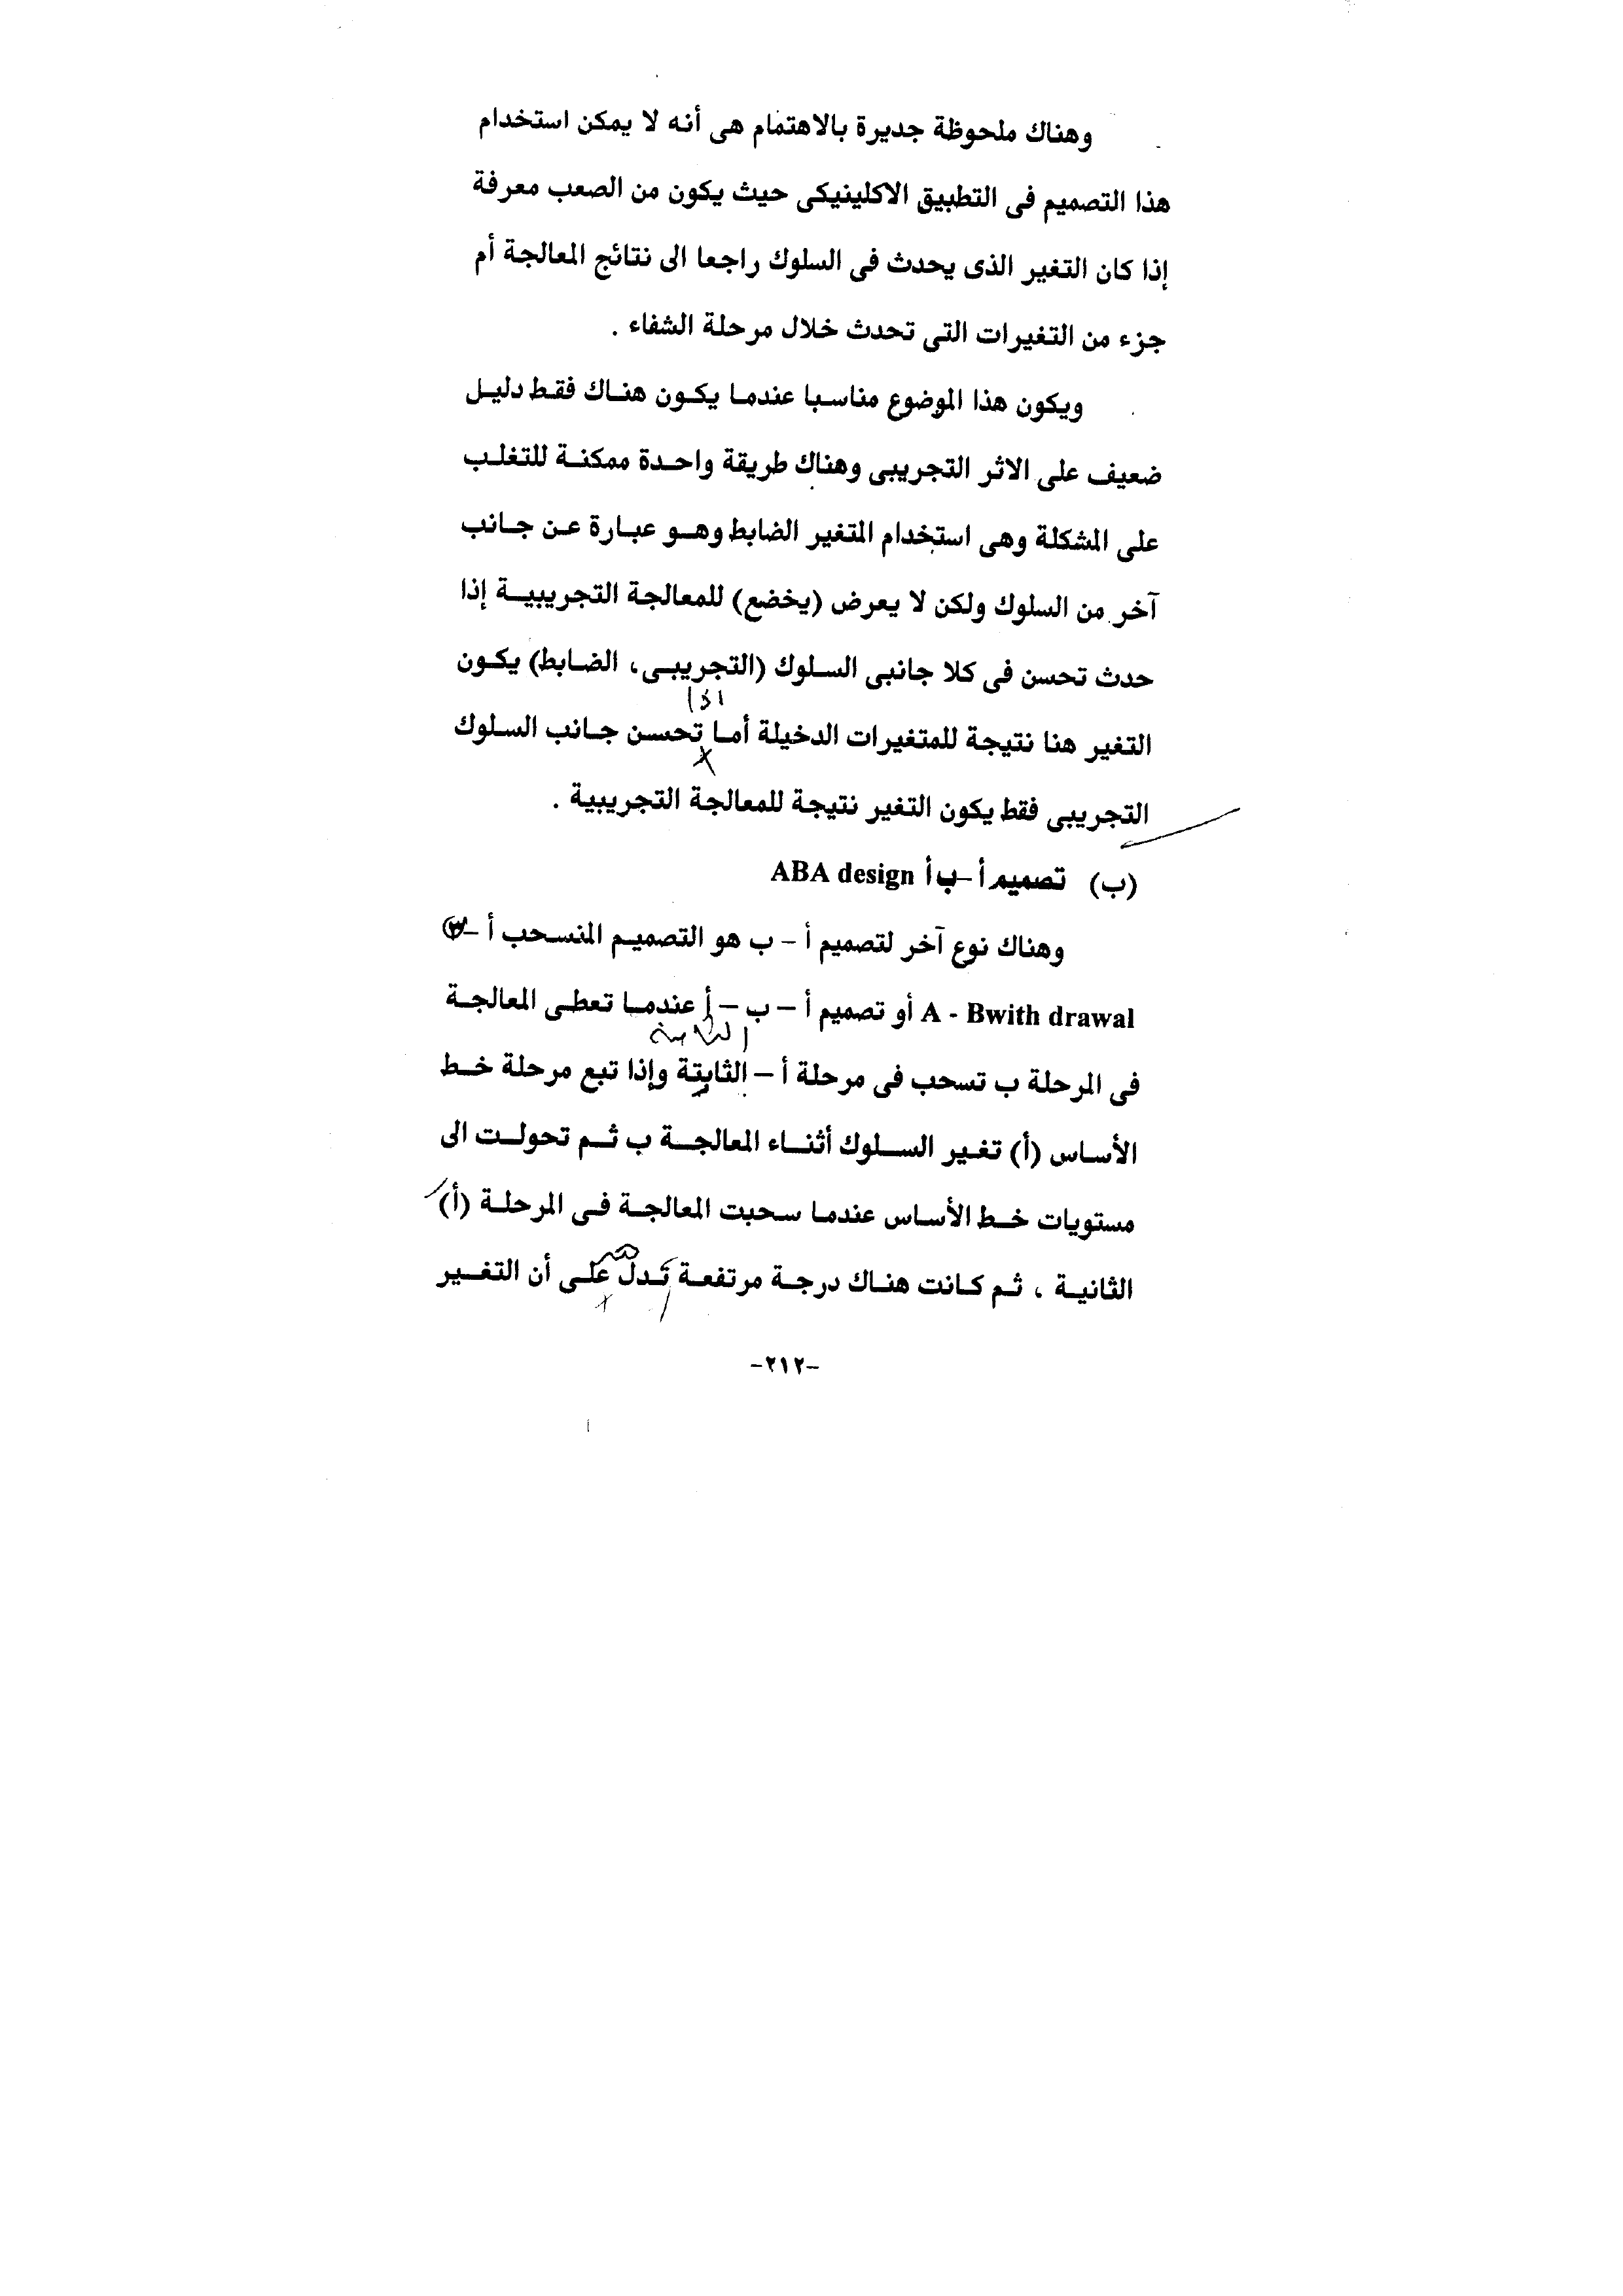 وهناك ملحوظة جديرة بالاهتمام هى أنه لا يمكن استخدام
هذا التصميم فى التطبيق الاكلينيكى حيث يكون من الصعب معرفة
إذا كان التغير الذى يحدث فى السلوك راجعا الى نتائج المعالجة أم
جزء من التغيرات التى تحدث خلال مرحلة الشفاء .
ويكون هذا الموضوع مناسبا عندما يكون هناك فقط دليل
ضعيف على الاثر التجريبى وهناك طريقة واحدة ممكنة للتغلب
على المشكلة وهى استخدام المتغير الضابط وهو عبارة عن جانب
آخر من السلوك ولكن لا يعرض (يخضع) للمعالجة التجريبية إذا
حدث تحسن فى كلا جانبى السلوك (التجريبى، الضابط) يكون
اذا
التغير هنا نتيجة للمتغيرات الدخيلة أما تحسن جانب السلوك
التجريبى فقط يكون التغير نتيجة للمعالجة التجريبية .
(ب) تصميم أ – ب أ ABA design
وهناك نوع آخر لتصميم أ – ب هو التصميم المنسحب أ –
A - Bwith drawal أو تصميم أ – ب – أ عندما تعطى المعالجة
الثانية
فى المرحلة ب تسحب فى مرحلة أ – الثابتة وإذا تبع مرحلة خط
الأساس (أ) تغير السلوك أثناء المعالجة ب ثم تحولت الى
مستويات خط الأساس عندما سحبت المعالجة فى المرحلة (أ)
الثانية ، ثم كانت هناك درجة مرتفعة تدل على أن التغير
-٢١٢-